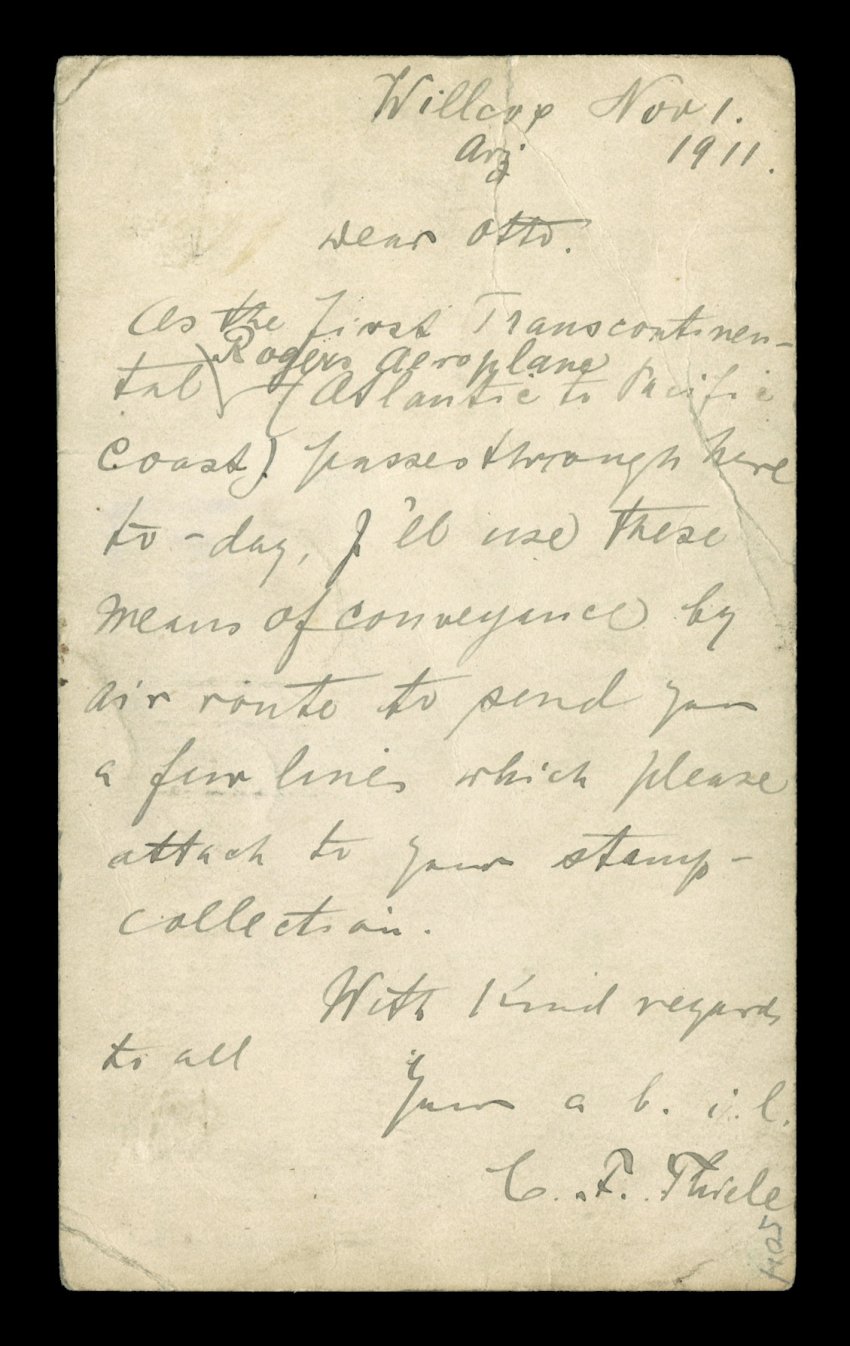 Willcox Nov 1.
Ariz 1911.
Dear Otto.
As the first Transcontinen-
Rogers Aeroplane
tal (Atlantic to Pacific
Coast) passes through here
to-day, I'll use these
means of conveyance by
air route to send you
a few lines which please
attach to your stamp-
collection.
With kind regards
to all
Your a b. i. l.
C. F. Thiele